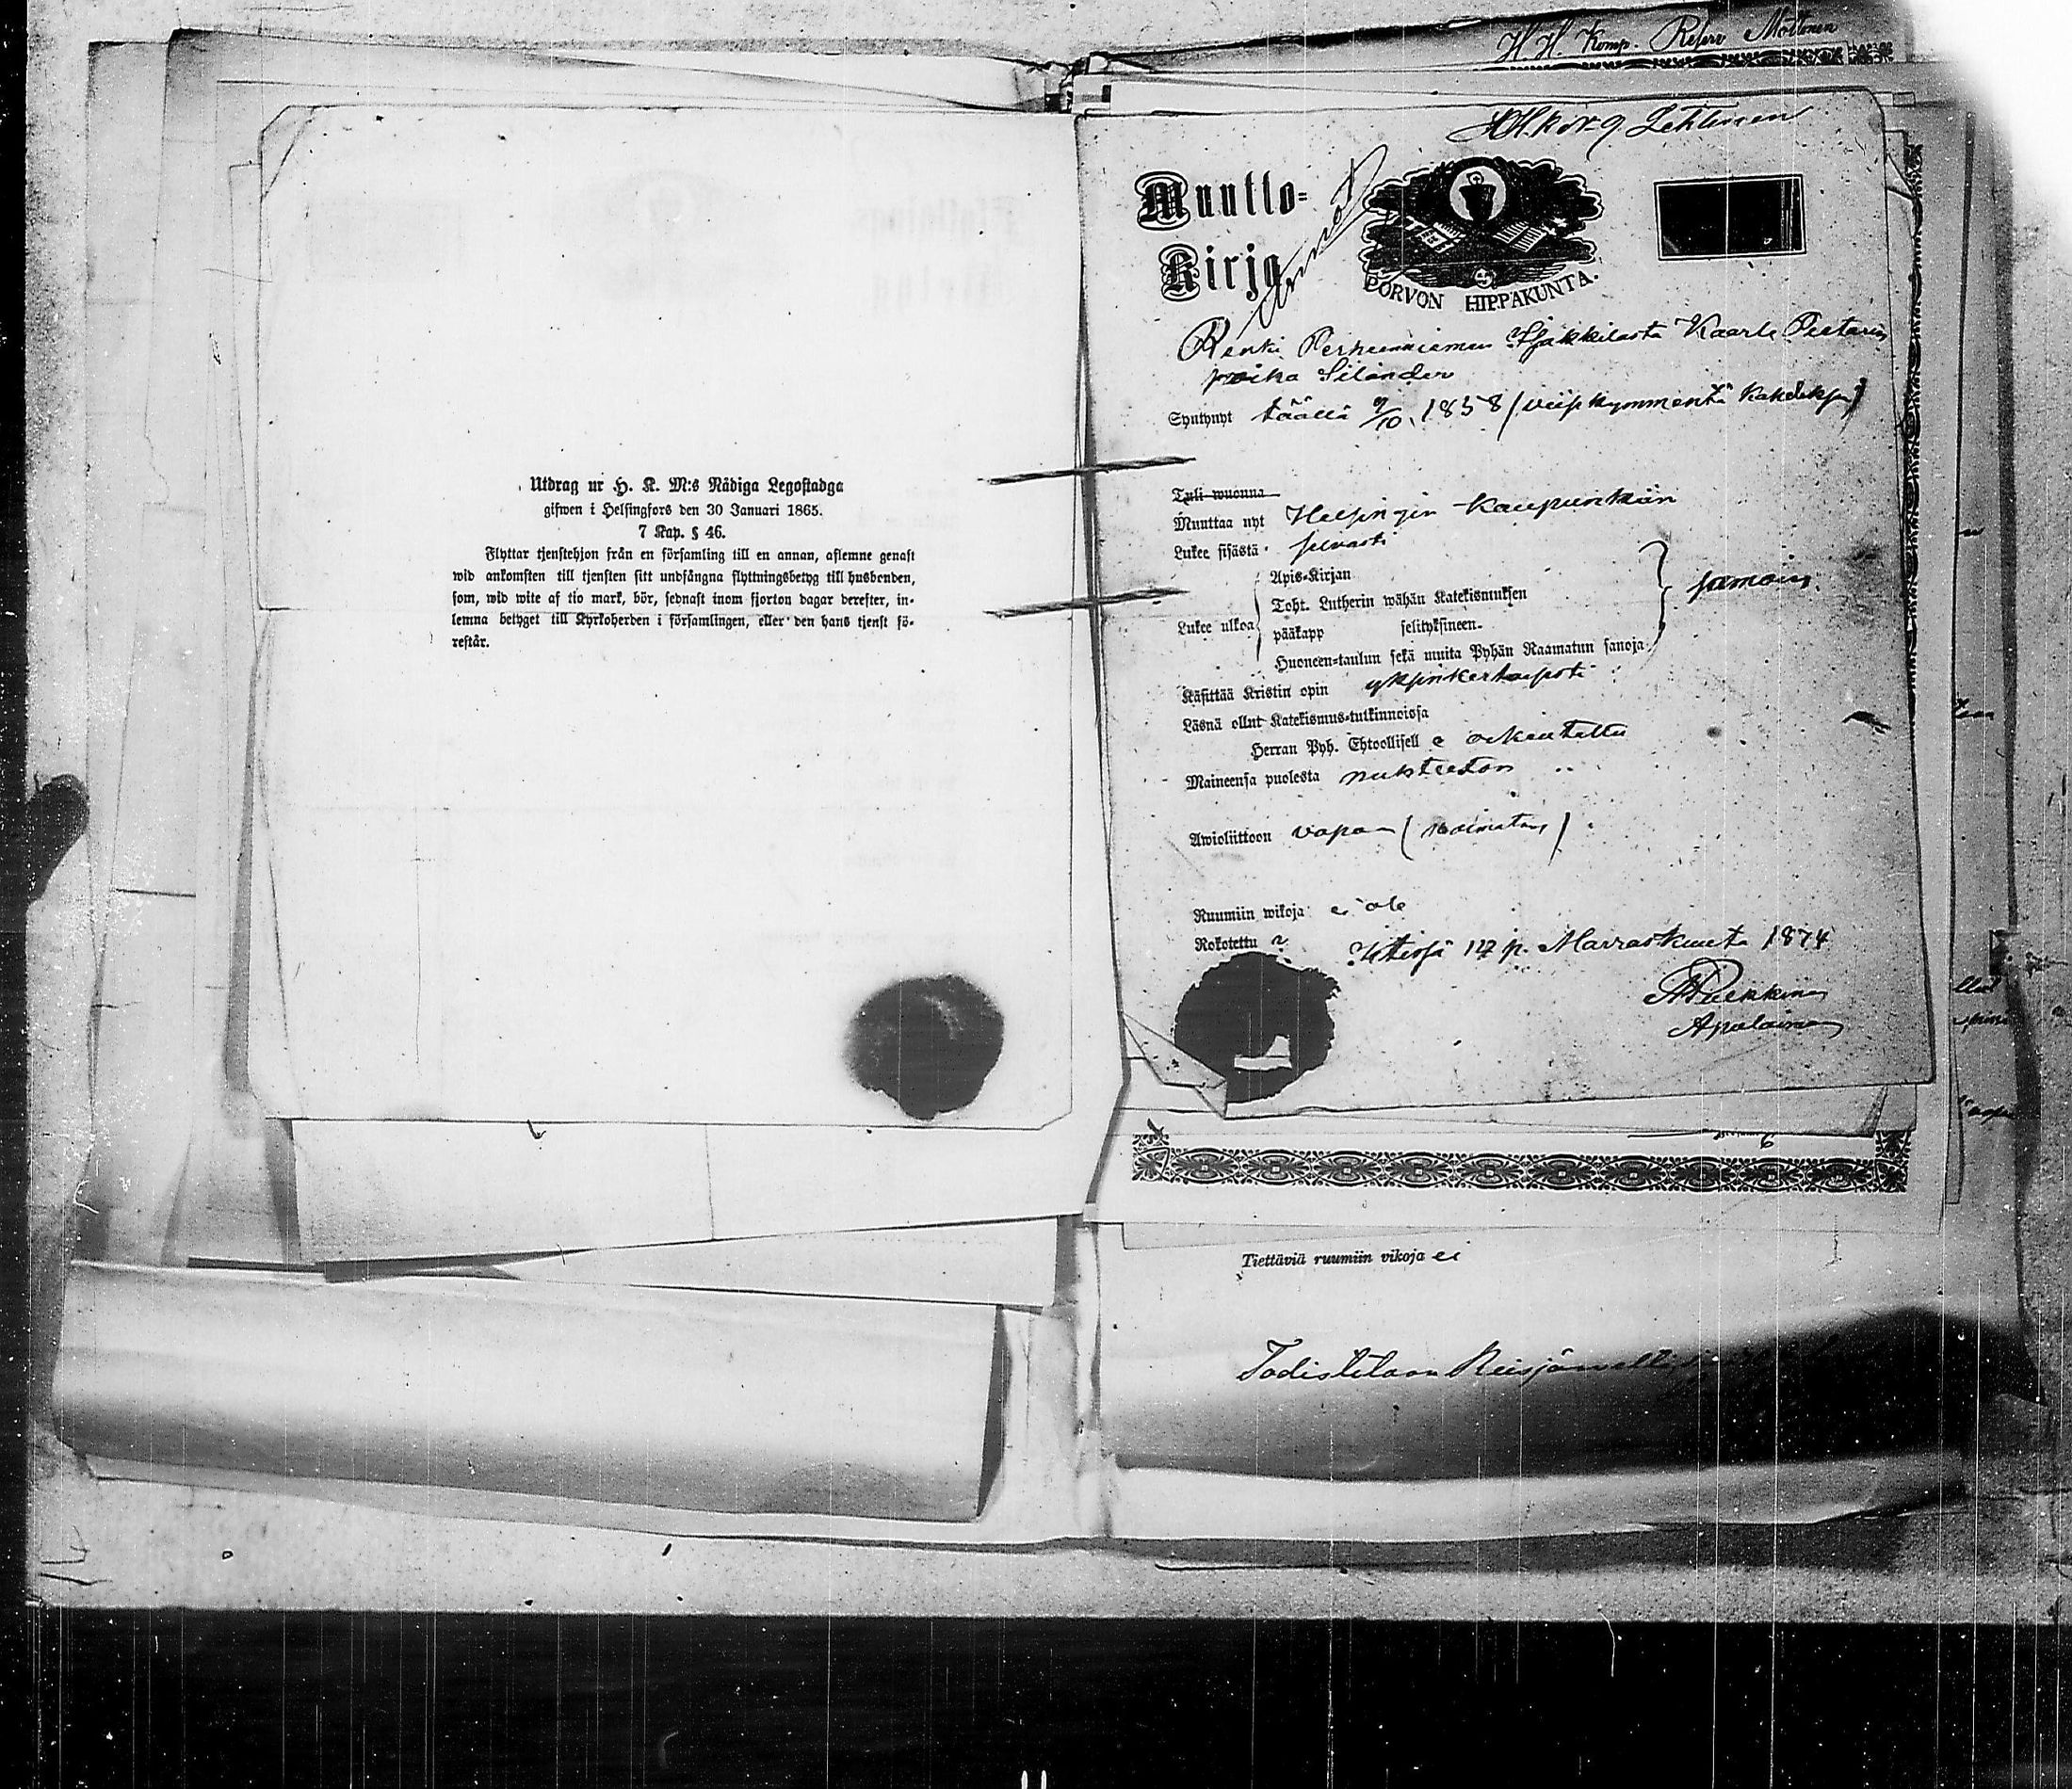 Utdrag ur H. K. M:s Nådiga Legostadga
gifwen i Helsingfors den 30 Januari 1865.
7 Kap. § 46.
Flyttar tjenstehjon från en församling till en annan, aflemne genast
wid ankomsten till tjensten sitt undfångna flyttningsbetyg till husbonden,
som, wid wite af tio mark, bör, sednast inom fjorton dagar derefter, in-
lemna betyget till Kyrkoherden i församlingen, eller den hans tjenst fö-
restår.
H. H. Komp. Reserv Möttönen
Lehtinen
Muutto-
Kirja
PORVON HIPPAKUNTA.
Renki Perheenniemen Kaarle Pietarin
poika Silander
Syntynyt täällä 9/10 1858 (viisikymmentä kahdeksan)
Tuli wuonna
Muuttaa nyt Helsingin kaupunkiin
Lukee sisästä selvästi
Apis-Kirjan
Toht. Lutherin wähän Katekismuksen
Lukee ulkoa
pääkapp selityksineen
Huoneen-taulun sekä muita Pyhän Raamatun sanoja
samoin
Käsittää Kristin opin yksinkertaisesti
Läsnä ollut Katekismus-tutkinnoissa
Herran Pyh. Ehtoollisell e oikeutettu
Maineensa puolesta nuhteeton
Awioliittoon vapaa (naimaton)
Ruumiin wikoja ei ole
Rokotettu
Iitissä 17 p. Marraskuuta 1874
Apulainen
Tiettäviä ruumiin vikoja ei
Todistetaan Reisjärvellä